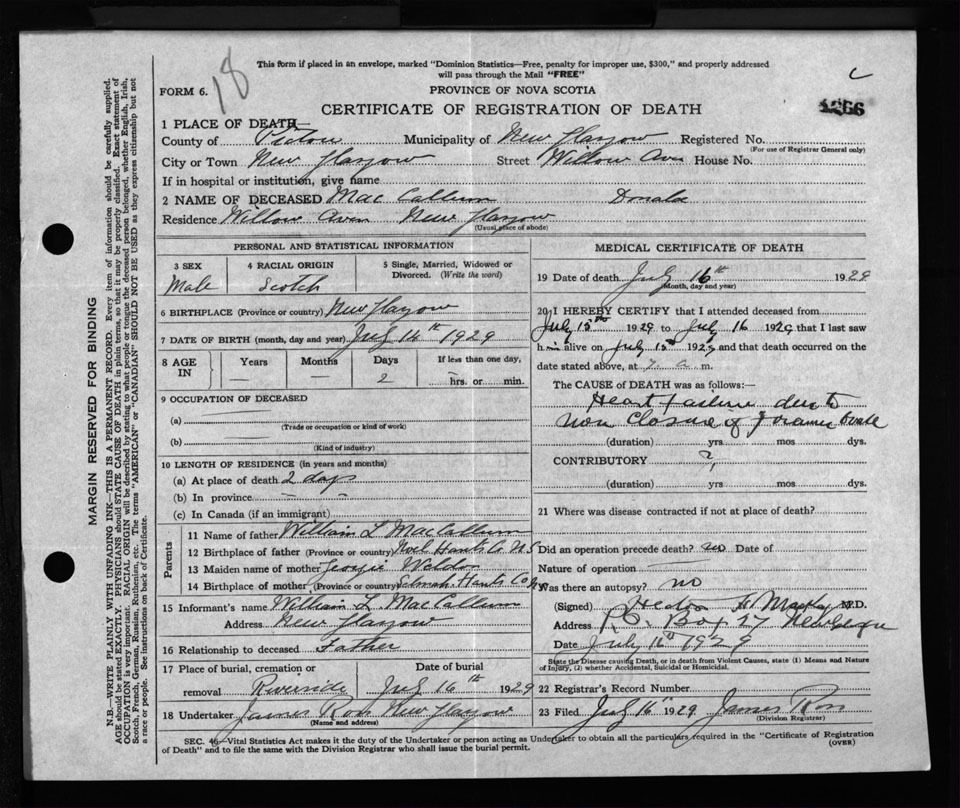 18
This form if placed in an envelope, marked "Dominion Statistics—Free, penalty for improper use, $300," and properly addressed
will pass through the Mail "FREE"
FORM 6.
PROVINCE OF NOVA SCOTIA
CERTIFICATE OF REGISTRATION OF DEATH
1 PLACE OF DEATH—
County of Pictou Municipality of New Glasgow Registered No.
(For use of Registrar General only)
City or Town New Glasgow Street Willow Aven House No.
If in hospital or institution, give name
2 NAME OF DECEASED Mac Callum Donald
Residence Willow Aven New Glasgow
(Usual place of abode)
PERSONAL AND STATISTICAL INFORMATION
3 SEX 4 RACIAL ORIGIN 5 Single, Married, Widowed or
Divorced. (Write the word)
Male Scotch
6 BIRTHPLACE (Province or country) New Glasgow
7 DATE OF BIRTH (month, day and year) July 14th 1929
8 AGE IN Years Months Days If less than one day,
— — 2 — hrs. or min.
9 OCCUPATION OF DECEASED
(a)
(Trade or occupation or kind of work)
(b)
(Kind of industry)
10 LENGTH OF RESIDENCE (in years and months)
(a) At place of death 2 days
(b) In province
(c) In Canada (if an immigrant)
Parents
11 Name of father William L MacCallum
12 Birthplace of father (Province or country) Noel Hants Co N S
13 Maiden name of mother Georgie Weldon
14 Birthplace of mother (Province or country) Selmah Hants Co NS
15 Informant's name William L. MacCallum
Address New Glasgow
16 Relationship to deceased Father
17 Place of burial, cremation or Date of burial
removal Riverside July 16th 1929
18 Undertaker James Ross New Glasgow
(Name and address)
MEDICAL CERTIFICATE OF DEATH
19 Date of death July 16th 1929
(Month, day and year)
20 I HEREBY CERTIFY that I attended deceased from
July 15th 1929 to July 16 1929 that I last saw
him alive on July 15th 1929 and that death occurred on the
date stated above, at 7 a m.
The CAUSE OF DEATH was as follows:—
Heart failure due to
non closure of Foramen Ovale
(duration) yrs. mos. dys.
CONTRIBUTORY ?
(duration) yrs. mos. dys.
21 Where was disease contracted if not at place of death?
Did an operation precede death? no Date of
Nature of operation
Was there an autopsy? no
(Signed) M.D.
Address P.O. Box 17
Date July 16th 1929
State the Disease causing Death, or in death from Violent Causes, state (1) Means and Nature
of Injury, (2) whether Accidental, Suicidal or Homicidal.
22 Registrar's Record Number
23 Filed July 16 1929 James Ross
(Division Registrar)
SEC. 46—Vital Statistics Act makes it the duty of the Undertaker or person acting as Undertaker to obtain all the particulars required in the "Certificate of Registration
of Death" and to file the same with the Division Registrar who shall issue the burial permit.
(OVER)
MARGIN RESERVED FOR BINDING
N.B.—WRITE PLAINLY WITH UNFADING INK—THIS IS A PERMANENT RECORD. Every item of information should be carefully supplied.
AGE should be stated EXACTLY. PHYSICIANS should STATE CAUSE OF DEATH in plain terms, so that it may be properly classified. Exact statement of
OCCUPATION is very important. RACIAL ORIGIN will be described by stating to what people or tongue the deceased person belonged, whether English, Irish,
Scotch, French, German, Russian, Ruthenian, etc. The terms "AMERICAN" or "CANADIAN" SHOULD NOT BE USED as they express citizenship but not
a race or people. See instructions on back of Certificate.